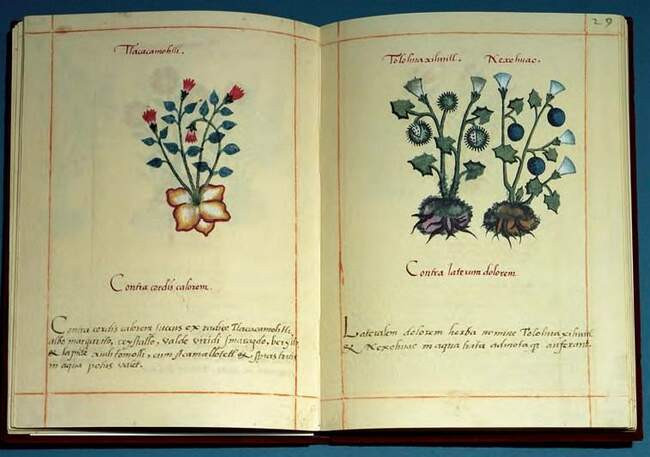 Tlacacamohtli.
Contra cordis calorem.
Contra cordis calorem succus ex radice Tlacacamohtli,
albo margarito, crystallo, valde viridi smaragdo, beryllo
& lapide xiuhtomolli, cum
in aqua potus valet.
29
Tolohuaxihuitl. Nexehuac.
Contra laterum dolorem
Lateralem dolorem herbæ nomine Tolohuaxihuitl
& Nexehuac in aqua tritæ admotæq; auferant.